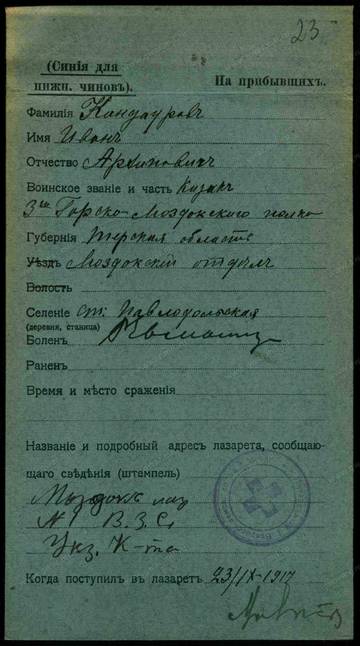 23
(Синія для
нижн. чиновъ).
На прибывшихъ.
Фамилія Кандауровъ
Имя Иванъ
Отчество Архиповичъ
Воинское званіе и часть Казакъ
3го Горско-Моздокскаго полка
Губернія Терская область
Уѣздъ Моздокскій отдѣлъ
Волость
Селеніе ст. Павлодольская
(деревня, станица)
Боленъ
Раненъ
Время и мѣсто сраженія
Названіе и подробный адресъ лазарета, сообщаю-
щаго свѣдѣнія (штемпель)
Моздокск. лаз
N В.З.С.
К-та
Когда поступилъ въ лазаретъ 23/IX-1917